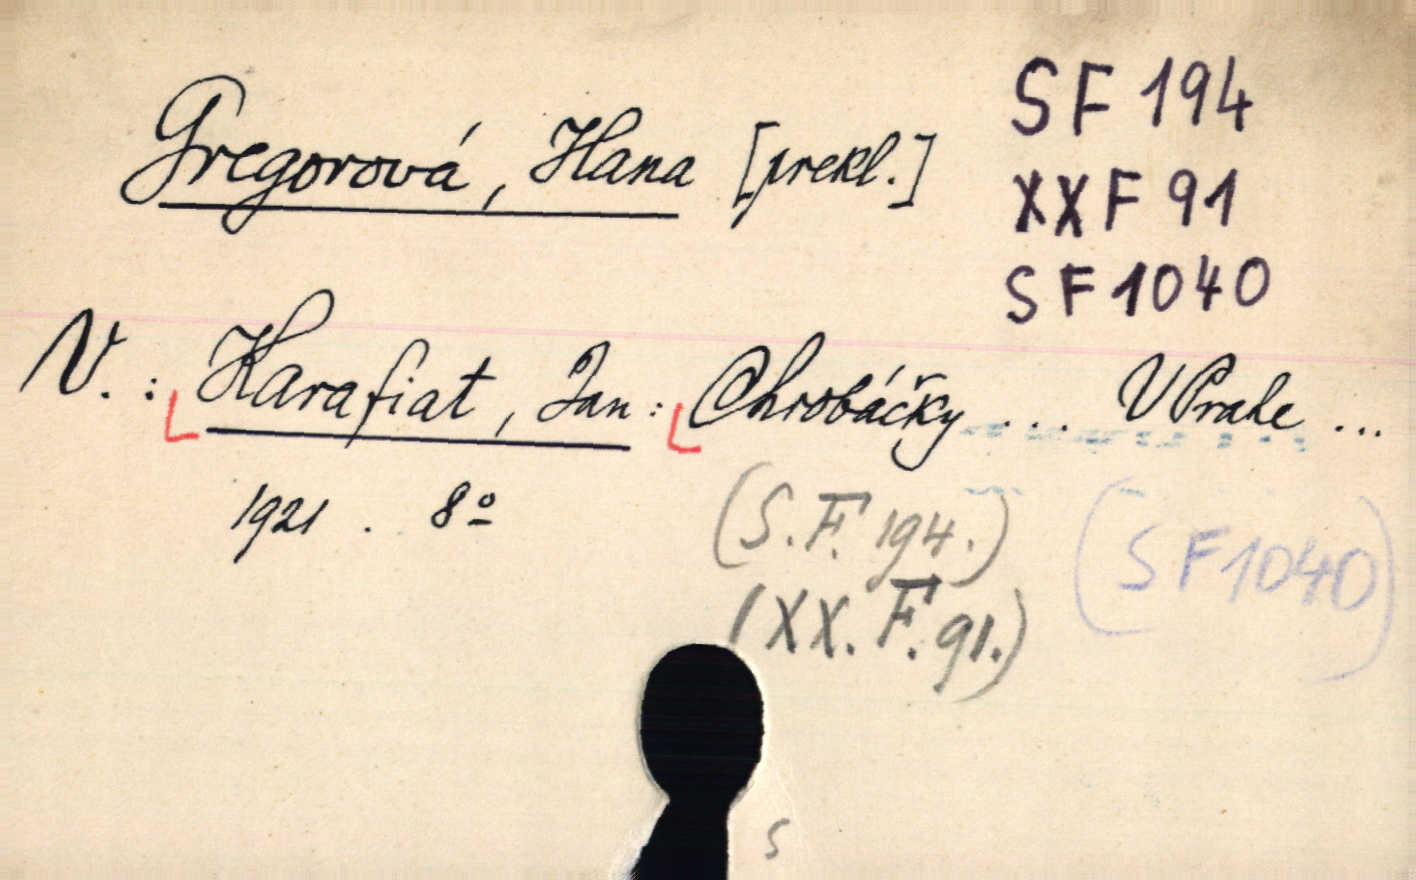 Gregorová, Hana [prekl.]
SF 194
XXF 91
SF 1040
V.: Karafiat, Jan: Chrobáčky ... V Prahe ...
1921. 8º
(S.F. 194.)
(XX. F. 91.)
(SF1040)
S